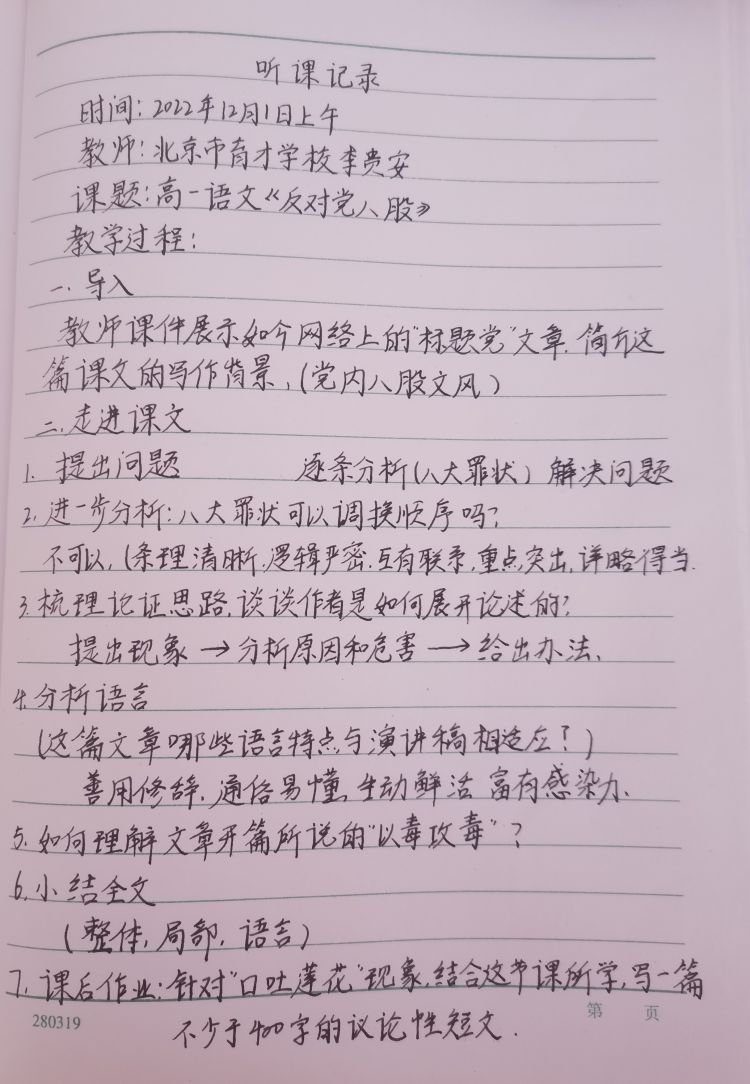 听课记录
时间：2022年12月1日上午
教师：北京市育才学校李贵安
课题：高一语文《反对党八股》
教学过程：
一、导入
教师课件展示如今网络上的“标题党”文章，简介这
篇课文的写作背景，（党内八股文风）
二、走进课文
1. 提出问题 逐条分析（八大罪状） 解决问题
2. 进一步分析：八大罪状可以调换顺序吗？
不可以，（条理清晰，逻辑严密，互有联系，重点突出，详略得当.
3. 梳理论证思路，谈谈作者是如何展开论述的？
提出现象→分析原因和危害→给出办法、
4. 分析语言
（这篇文章哪些语言特点与演讲稿相适应？）
善用修辞、通俗易懂、生动鲜活 富有感染力.
5. 如何理解文章开篇所说的“以毒攻毒”？
6. 小结全文
（整体，局部，语言）
7. 课后作业：针对“口吐莲花”现象，结合这节课所学，写一篇
不少于400字的议论性短文.
280319 第 页